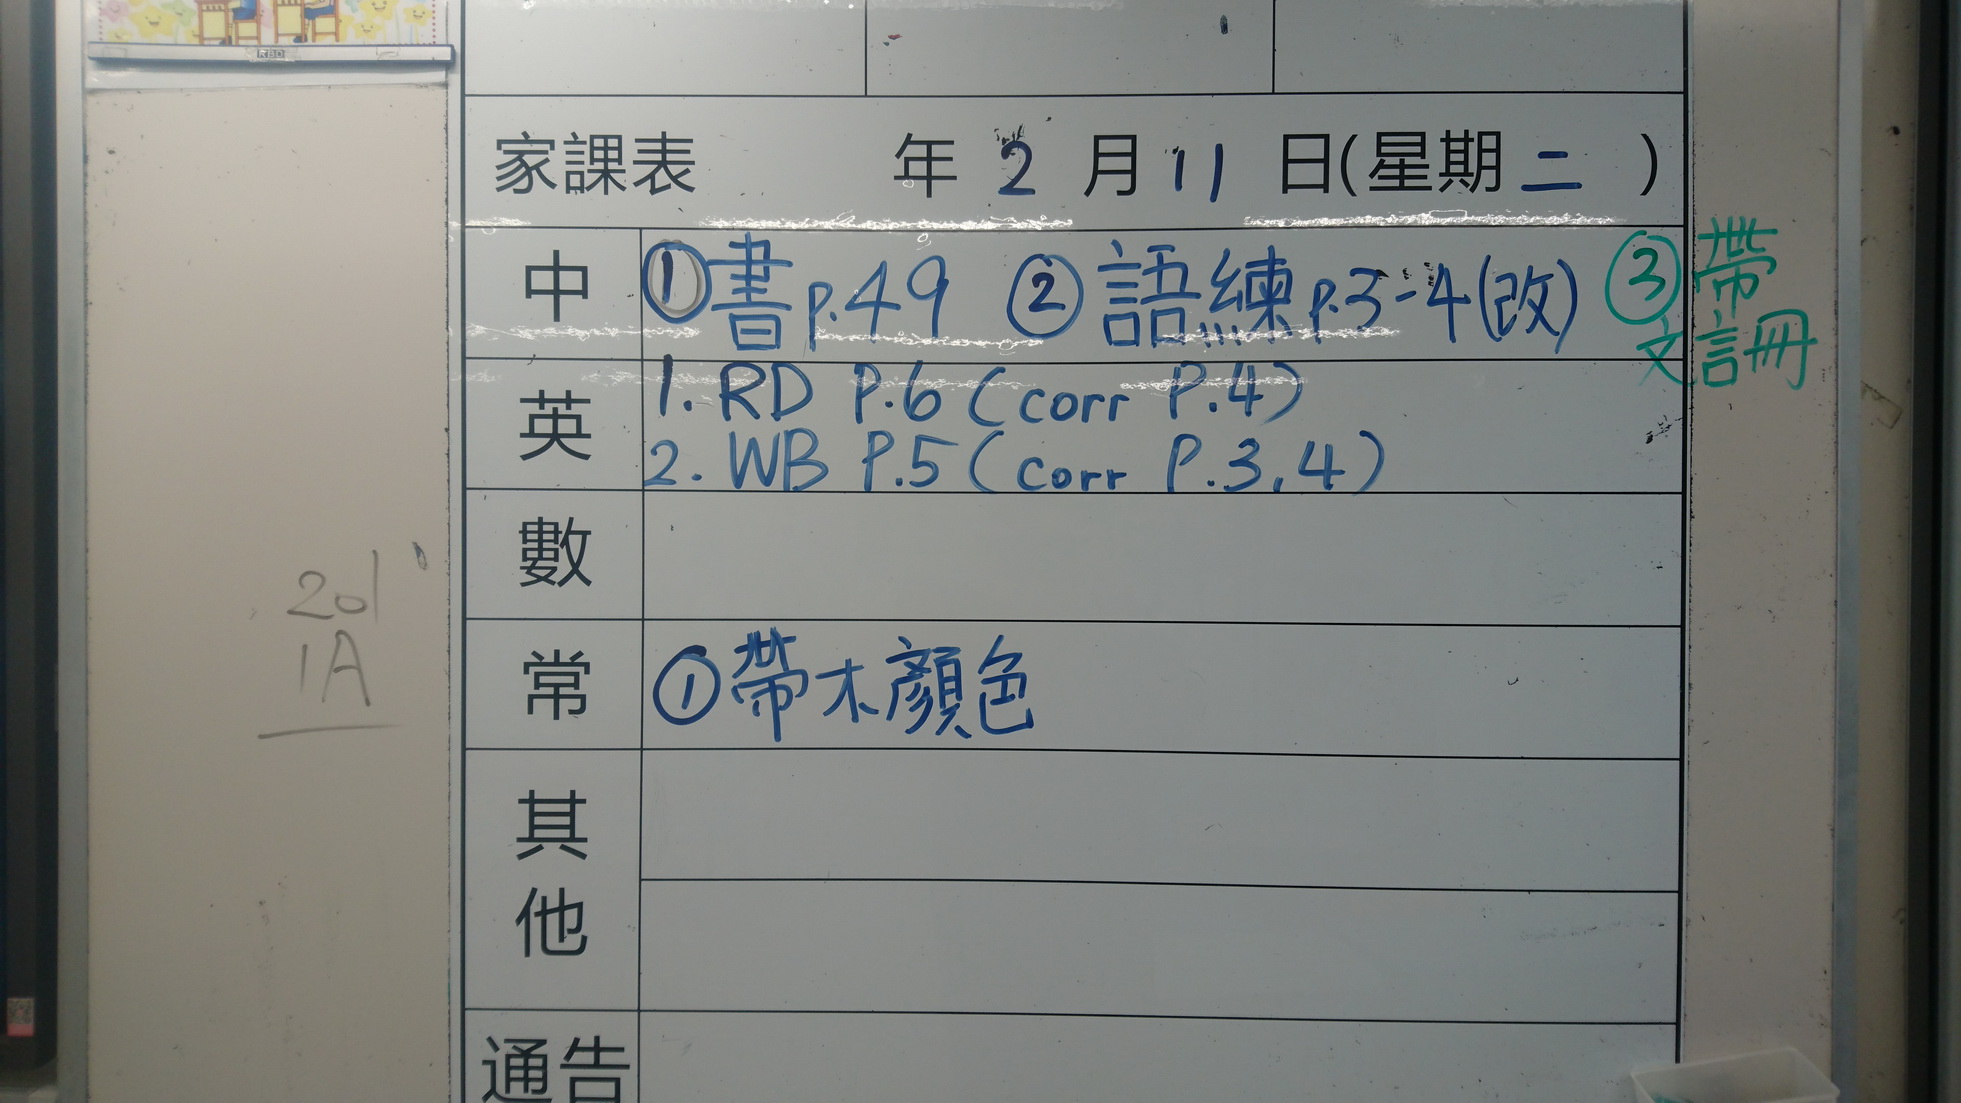 家課表 年 2 月 11 日(星期 二 )
中 ①書p.49 ②語練p.3-4(改) ③帶
文言冊
英 1. RD P.6 (corr P.4)
2. WB P.5 (corr P.3,4)
數
常 ①帶木顏色
其
他
通告
201
1A